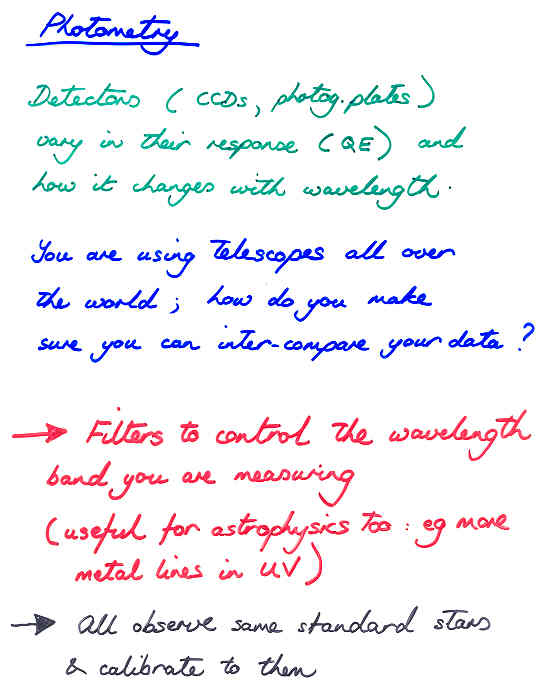 Photometry
Detectors (CCDs, photog. plates)
vary in their response (QE) and
how it changes with wavelength.
You are using telescopes all over
the world; how do you make
sure you can inter-compare your data?
→ Filters to control the wavelength
band you are measuring
(useful for astrophysics too: eg more
metal lines in UV)
→ All observe same standard stars
& calibrate to them